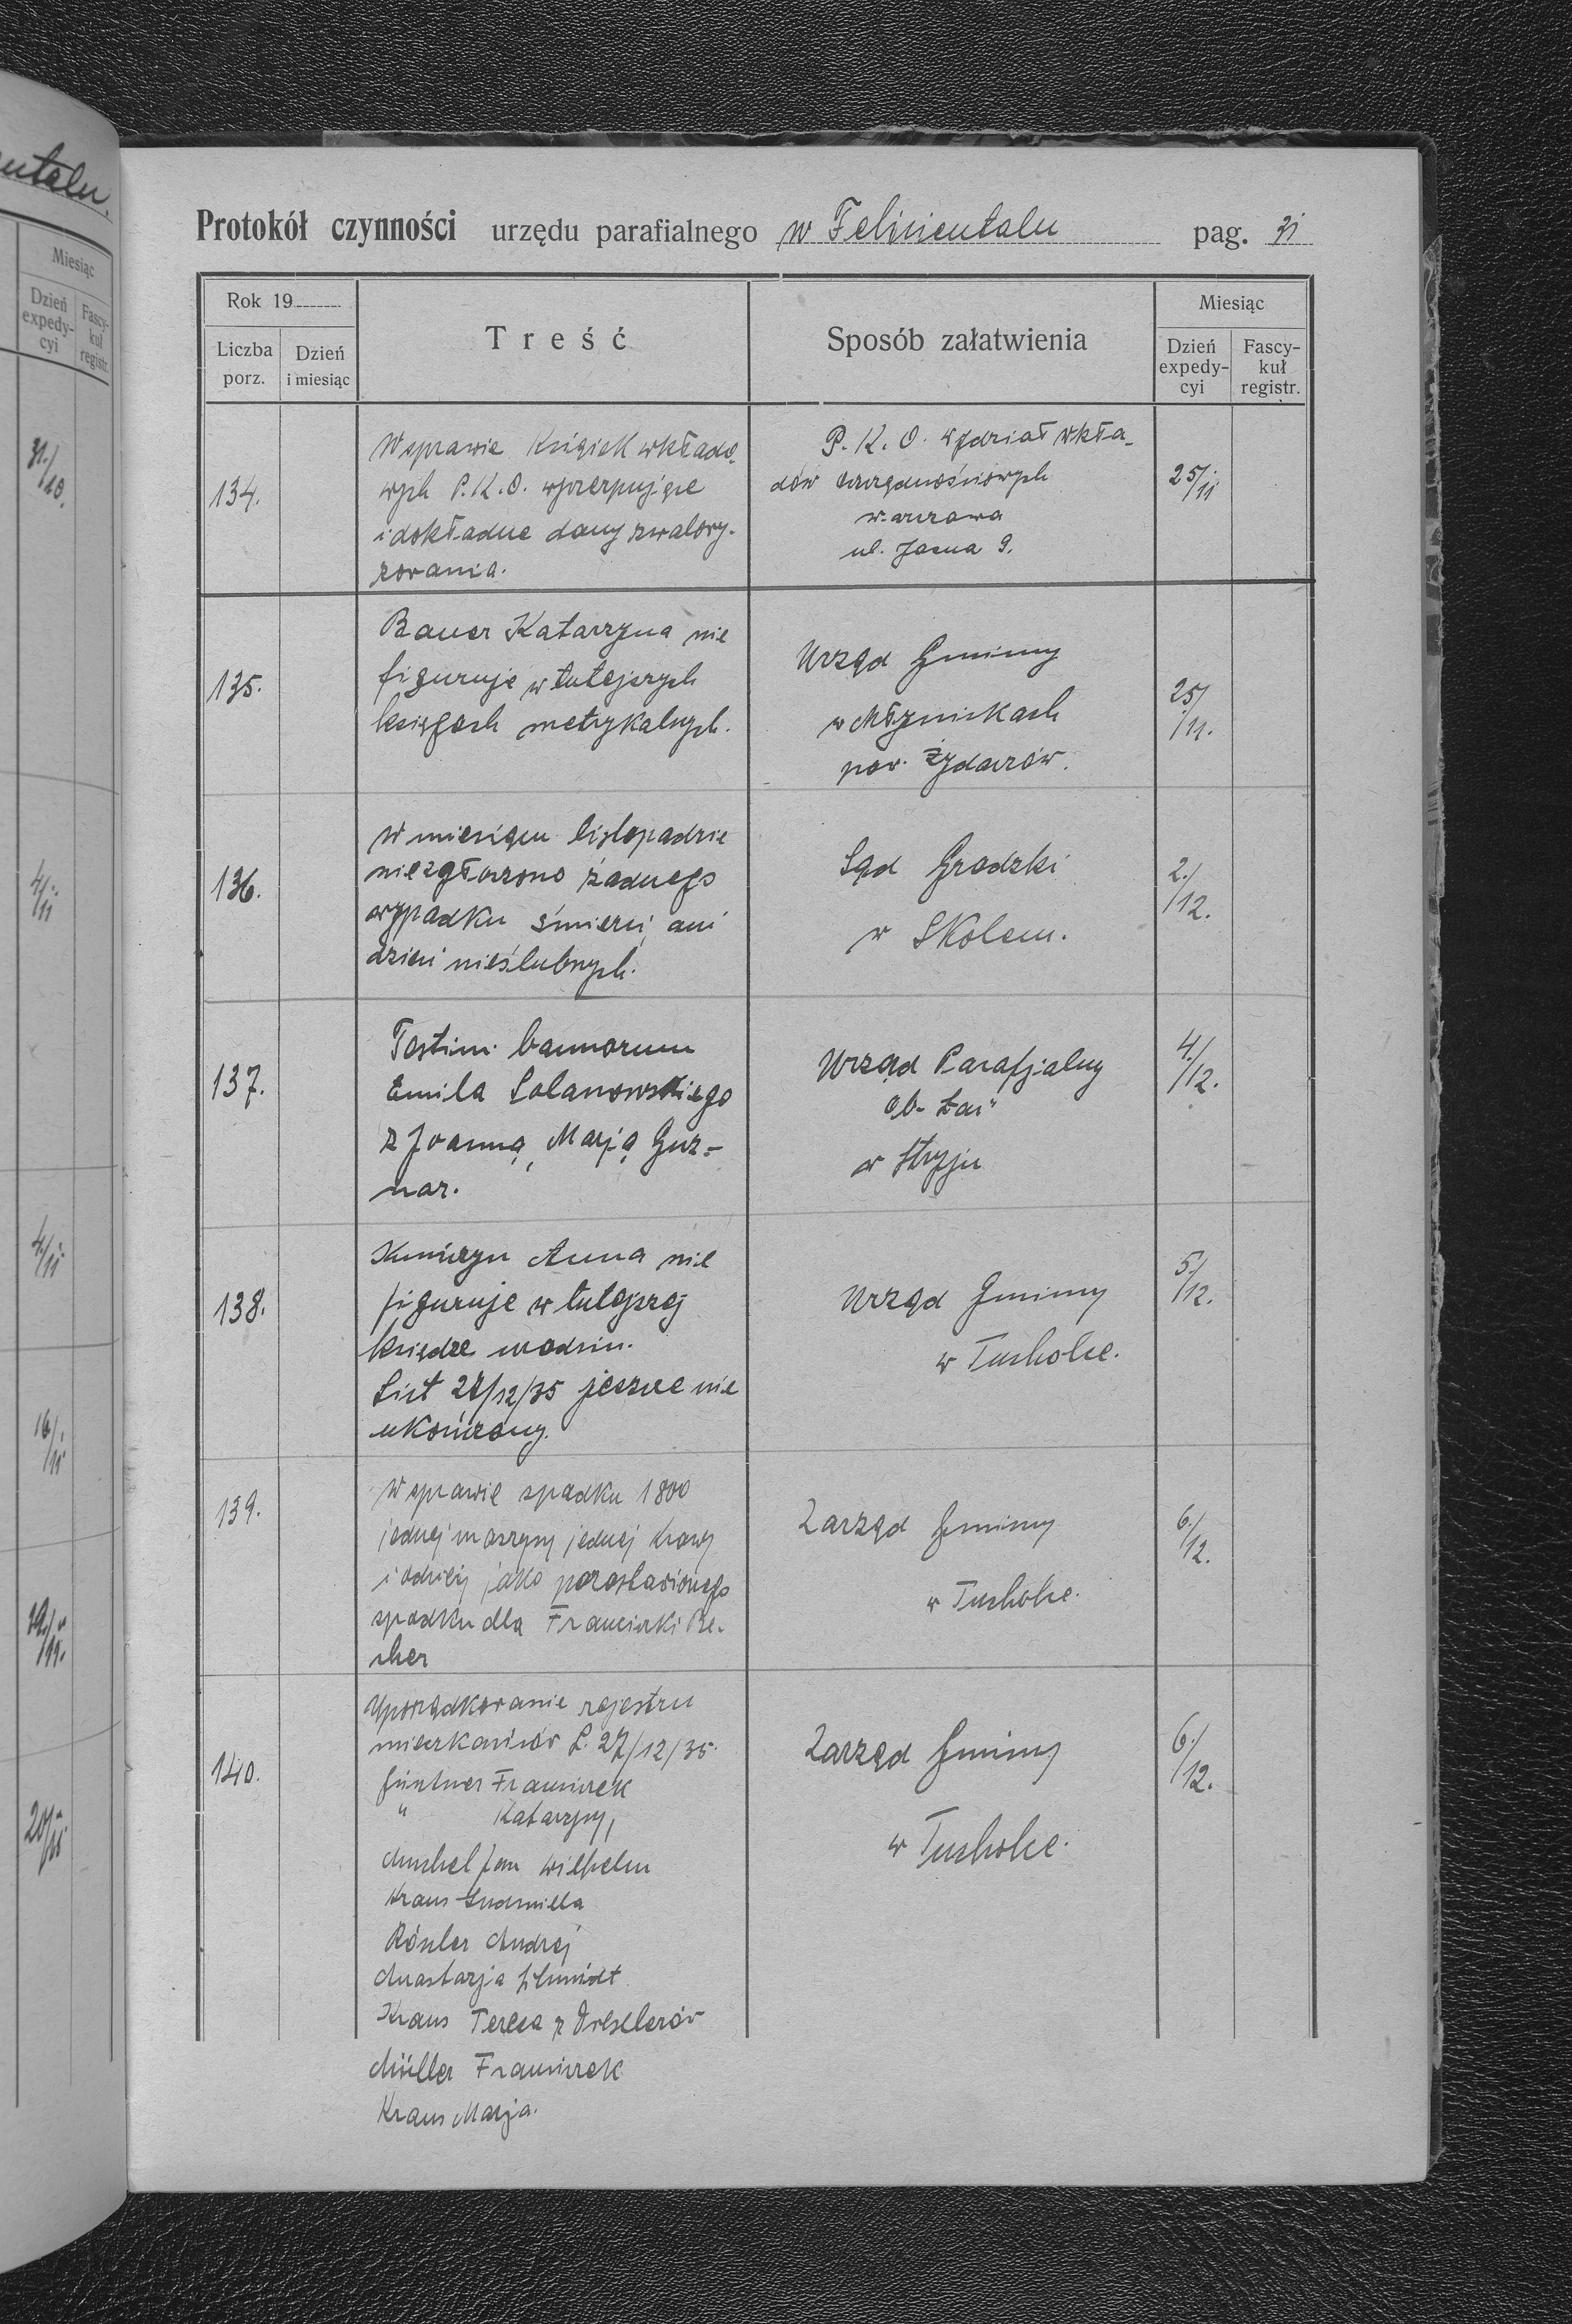 utalu.
Miesiąc
Dzień expedy- cyi
Fascy- kuł registr.
31./10.
4/11
4/11
16/11
20/11
Protokół czynności urzędu parafialnego w Felicientalu pag. 31
Rok 19
Liczba porz.
Dzień i miesiąc
Treść
Sposób załatwienia
Miesiąc
Dzień expedy- cyi
Fascy- kuł registr.
134.
W sprawie Książek wkłado-
wych P.K.O. wyczerpujące
i dokładne dany zwalory-
zowania.
P.K.O. wydział wkła-
dów oszczędnościowych
warszawa
ul. Jasna 9.
25/11
135.
Bauer Katarzyna nie
figuruje w tutejszych
księgach metrykalnych.
Urząd Gminny
w Młyniskach
pow. Żydaczów.
25/11.
136.
W miesiącu listopadzie
niezgłoszono żadnego
wypadku śmierci ani
dzieci nieślubnych.
Sąd Grodzki
w Skolem.
2./12.
137.
Testim. bannorum
Emila Solanowskiego
z Joanną, Marją Guz-
nar.
Urząd Parafjalny
ob. łać
w Stryju
4./12.
138.
Anna nie
figuruje w tutejszej
księdze urodzin.
List 27/12/35 jeszcze nie
ukończony.
Urząd Gminny
w Tucholce.
5./12.
139.
W sprawie spadku 1800
jednej maszyny jednej krowy
i odzieży jako pozostawionego
spadku dla Franciszki Be-
cher
Zarząd Gminny
w Tucholce.
6./12.
140.
Uporządkowanie rejestru
mieszkańców L. 27/12/35.
Güntner Franciszek
" Katarzyny,
Muschel Jan Wilhelm
Kraus Ludmilla
Rösler Andrej
Anastazja Schmidt
Kraus Teresa z Dreslerów
Müller Franciszek
Kraus Marja.
Zarząd Gminny
w Tucholce.
6./12.